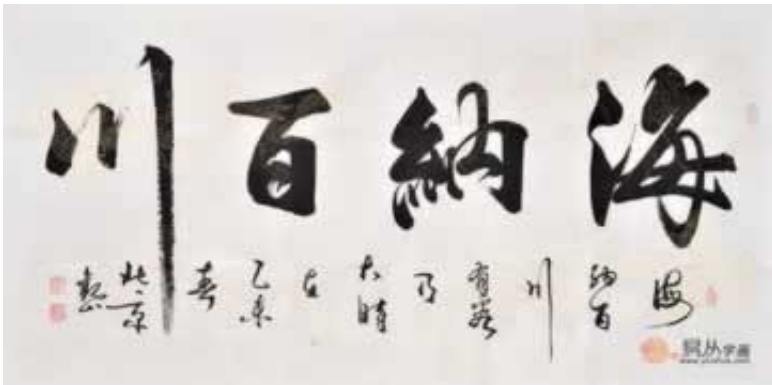 海納百川
海納百川有容乃大時在乙未春北京
字画